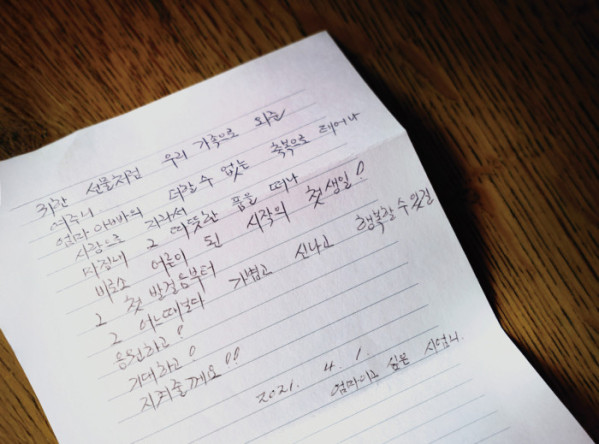 귀한 선물처럼 우리 가족으로 와준
며주니
엄마 아빠의 더할 수 없는 축복으로 태어나
사랑으로 자라서
마침내 그 따뜻한 품을 떠나
비로소 어른이 된 시작의 첫 생일!
그 첫 발걸음부터
그 어느때보다 가볍고 신나고 행복할 수 있길
응원하고!
기대하고!
지켜줄께요!!
2021. 4. 1.
엄마이고 싶은 시엄니.